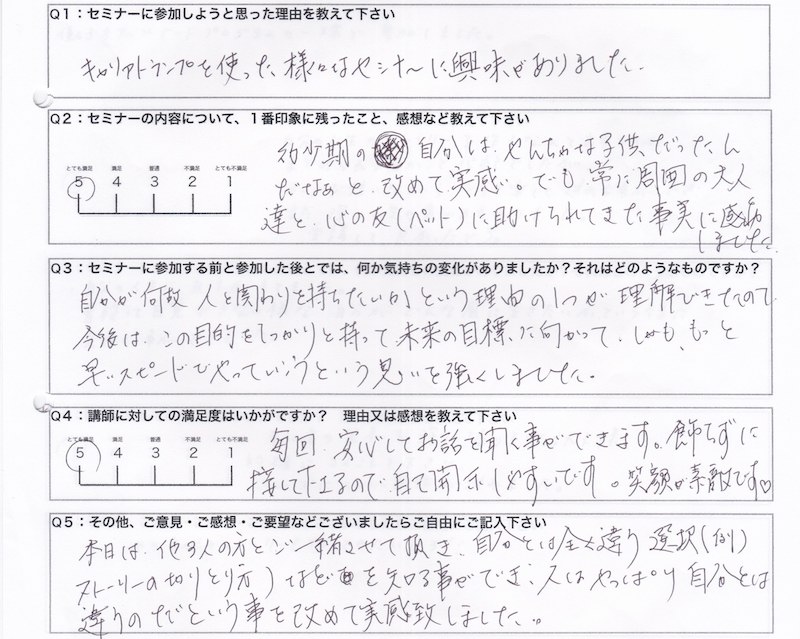 Q1：セミナーに参加しようと思った理由を教えて下さい
キャリアトランプを使った様々なセミナーに興味がありました。
Q2：セミナーの内容について、1番印象に残ったこと、感想など教えて下さい
とても満足 満足 普通 不満足 とても不満足
5 4 3 2 1
幼少期の 自分は、やんちゃな子供だったん
だなぁと、改めて実感。でも常に周囲の大人
達と、心の友(ペット)に助けられてきた事実に感動
しました。
Q3：セミナーに参加する前と参加した後とでは、何か気持ちの変化がありましたか？それはどのようなものですか？
自分が何故 人と関わりを持ちたいか という理由の1つが理解できたので
今後は、この目的をしっかりと持って、未来の目標に向かって、しかも、もっと
早いスピードでやっていこうという思いを強くしました。
Q4：講師に対しての満足度はいかがですか？ 理由又は感想を教えて下さい
とても満足 満足 普通 不満足 とても不満足
5 4 3 2 1
毎回、安心してお話を聞く事ができます。飾らずに
接して下さるので、自己開示しやすいです。笑顔が素敵です♡
Q5：その他、ご意見・ご感想・ご要望などございましたらご自由にご記入下さい
本日は、他3人の方とご一緒させて頂き、自分とは全く違う選択(例)
ストーリーの切りとり方)などを知る事ができ、人はやっぱり自分とは
違うのだという事を改めて実感致しました。